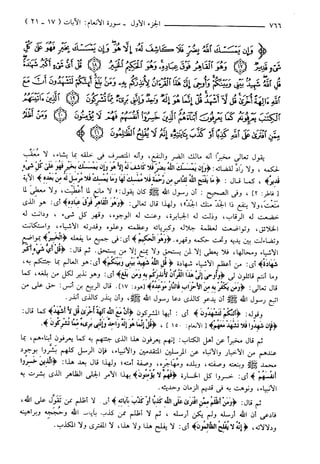 ٧٦٦ الجزء الأول - سورة الأنعام: الآيات (١٧ - ٢١)
﴿ وَإِن يَمْسَسْكَ ٱللَّهُ بِضُرٍّ فَلَا كَاشِفَ لَهُۥٓ إِلَّا هُوَ وَإِن يَمْسَسْكَ بِخَيْرٍ فَهُوَ عَلَىٰ كُلِّ
شَىْءٍ قَدِيرٌ ﴿١٧﴾ وَهُوَ ٱلْقَاهِرُ فَوْقَ عِبَادِهِۦ وَهُوَ ٱلْحَكِيمُ ٱلْخَبِيرُ ﴿١٨﴾ قُلْ أَىُّ شَىْءٍ أَكْبَرُ
شَهَٰدَةً قُلِ ٱللَّهُ شَهِيدٌۢ بَيْنِى وَبَيْنَكُمْ وَأُوحِىَ إِلَىَّ هَٰذَا ٱلْقُرْءَانُ لِأُنذِرَكُم بِهِۦ وَمَنۢ بَلَغَ أَئِنَّكُمْ لَتَشْهَدُونَ أَنَّ مَعَ
ٱللَّهِ ءَالِهَةً أُخْرَىٰ قُل لَّآ أَشْهَدُ قُلْ إِنَّمَا هُوَ إِلَٰهٌ وَٰحِدٌ وَإِنَّنِى بَرِىٓءٌ مِّمَّا تُشْرِكُونَ ﴿١٩﴾ ٱلَّذِينَ ءَاتَيْنَٰهُمُ
ٱلْكِتَٰبَ يَعْرِفُونَهُۥ كَمَا يَعْرِفُونَ أَبْنَآءَهُمُ ٱلَّذِينَ خَسِرُوٓا۟ أَنفُسَهُمْ فَهُمْ لَا يُؤْمِنُونَ ﴿٢٠﴾ وَمَنْ أَظْلَمُ
مِمَّنِ ٱفْتَرَىٰ عَلَى ٱللَّهِ كَذِبًا أَوْ كَذَّبَ بِـَٔايَٰتِهِۦٓ إِنَّهُۥ لَا يُفْلِحُ ٱلظَّٰلِمُونَ ﴿٢١﴾
يقول تعالى مخبراً أنه مالك الضر والنفع، وأنه المتصرف في خلقه بما يشاء، لا معقب
لحكمه، ولا رادّ لقضائه: ﴿وَإِن يَمْسَسْكَ ٱللَّهُ بِضُرٍّ فَلَا كَاشِفَ لَهُ إِلَّا هُوَ وَإِن يَمْسَسْكَ بِخَيْرٍ فَهُوَ عَلَىٰ كُلِّ شَىْءٍ
قَدِيرٌ﴾، كما قال: ﴿مَّا يَفْتَحِ ٱللَّهُ لِلنَّاسِ مِن رَّحْمَةٍ فَلَا مُمْسِكَ لَهَا وَمَا يُمْسِكْ فَلَا مُرْسِلَ لَهُ مِنۢ بَعْدِهِ﴾ الآية
[فاطر: ٢]، وفي الصحيح: أن رسول الله ﷺ كان يقول: «لا مانع لما أعطيت، ولا معطي لما
منعت، ولا ينفع ذا الجد منك الجد»؛ ولهذا قال تعالى: ﴿وَهُوَ ٱلْقَاهِرُ فَوْقَ عِبَادِهِ﴾ أي: هو الذي
خضعت له الرقاب، وذلت له الجبابرة، وعنت له الوجوه، وقهر كل شيء، ودانت له
الخلائق، وتواضعت لعظمة جلاله وكبريائه وعظمته وعلوه وقدرته الأشياء، واستكانت
وتضاءلت بين يديه وتحت حكمه وقهره. ﴿وَهُوَ ٱلْحَكِيمُ﴾ أي: في جميع ما يفعله ﴿ٱلْخَبِيرُ﴾ بمواضع
الأشياء ومحالها، فلا يعطي إلا لمن يستحق ولا يمنع إلا من يستحق. ثم قال: ﴿قُلْ أَىُّ شَىْءٍ أَكْبَرُ
شَهَٰدَةً﴾ أي: من أعظم الأشياء شهادة ﴿قُلِ ٱللَّهُ شَهِيدٌۢ بَيْنِى وَبَيْنَكُمْ﴾ أي: هو العالم بما جئتكم به،
وما أنتم قائلون لي ﴿وَأُوحِىَ إِلَىَّ هَٰذَا ٱلْقُرْءَانُ لِأُنذِرَكُم بِهِ وَمَنۢ بَلَغَ﴾ أي: وهو نذير لكل من بلغه، كما
قال تعالى: ﴿وَمَن يَكْفُرْ بِهِ مِنَ ٱلْأَحْزَابِ فَٱلنَّارُ مَوْعِدُهُ﴾ [هود: ١٧]. قال الربيع بن أنس: حق على من
اتبع رسول الله ﷺ أن يدعو كالذي دعا رسول الله ﷺ، وأن ينذر كالذي أنذر.
وقوله: ﴿أَئِنَّكُمْ لَتَشْهَدُونَ﴾ أي: أيها المشركون ﴿أَنَّ مَعَ ٱللَّهِ ءَالِهَةً أُخْرَىٰ قُل لَّآ أَشْهَدُ﴾ كما قال:
﴿فَإِن شَهِدُوا فَلَا تَشْهَدْ مَعَهُمْ﴾ [الأنعام: ١٥٠]، ﴿قُلْ إِنَّمَا هُوَ إِلَٰهٌ وَٰحِدٌ وَإِنَّنِى بَرِىٓءٌ مِّمَّا تُشْرِكُونَ﴾.
ثم قال مخبراً عن أهل الكتاب: إنهم يعرفون هذا الذي جئتهم به كما يعرفون أبناءهم، بما
عندهم من الأخبار والأنباء عن المرسلين المتقدمين والأنبياء، فإن الرسل كلهم بشّروا بوجود
محمد ﷺ وبنعته وصفته، وبلده ومهاجره، وصفة أمته؛ ولهذا قال بعد هذا: ﴿ٱلَّذِينَ خَسِرُوٓا
أَنفُسَهُمْ﴾ أي: خسروا كل الخسارة ﴿فَهُمْ لَا يُؤْمِنُونَ﴾ بهذا الأمر الجلي الظاهر الذي بشرت به
الأنبياء، ونوهت به في قديم الزمان وحديثه.
ثم قال: ﴿وَمَنْ أَظْلَمُ مِمَّنِ ٱفْتَرَىٰ عَلَى ٱللَّهِ كَذِبًا أَوْ كَذَّبَ بِـَٔايَٰتِهِ﴾ أي: لا أظلم ممن تقوّل على الله،
فادعى أن الله أرسله ولم يكن أرسله، ثم لا أظلم ممن كذب بآيات الله وحججه وبراهينه
ودلالاته، ﴿إِنَّهُ لَا يُفْلِحُ ٱلظَّٰلِمُونَ﴾ أي: لا يفلح هذا ولا هذا، لا المفتري ولا المكذب.